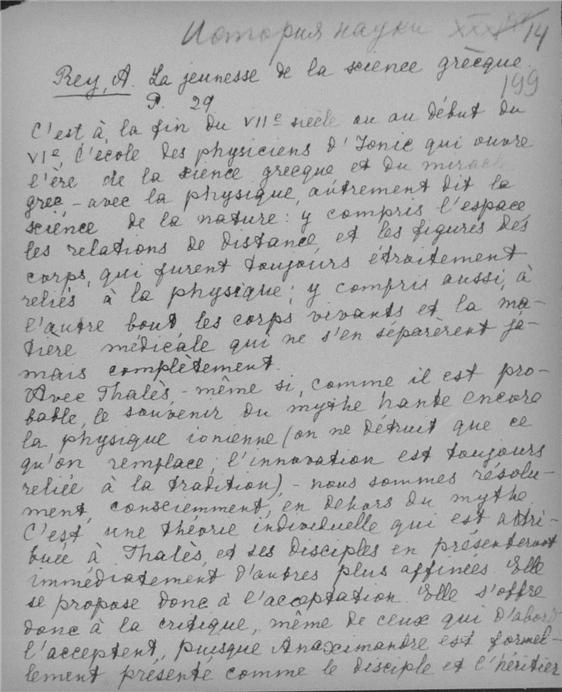 История науки XXX/14
199
Rey, A. La jeunesse de la science grècque.
P. 29
C'est à la fin du VIIe siècle ou au début du
VIe, l'école des physiciens d'Ionie qui ouvre
l'ère de la science grecque et du miracle
grec – avec la physique, autrement dit la
science de la nature: y compris l'espace
les relations de distance, et les figures des
corps, qui furent toujours étroitement
reliés à la physique; y compris aussi, à
l'autre bout, les corps vivants et la ma-
tière médicale qui ne s'en séparèrent ja-
mais complètement.
Avec Thalès, – même si, comme il est pro-
bable, le souvenir du mythe hante encore
la physique ionienne (on ne détruit que ce
qu'on remplace, l'innovation est toujours
reliée à la tradition), – nous sommes résolu-
ment, consciemment, en dehors du mythe
C'est une théorie individuelle qui est attri-
buée à Thalès, et ses disciples en présenteront
immédiatement d'autres plus affinées. Elle
se propose donc à l'acceptation. Elle s'offre
donc à la critique, même de ceux qui d'abord
l'acceptent, puisque Anaximandre est formel-
lement présenté comme le disciple et l'héritier